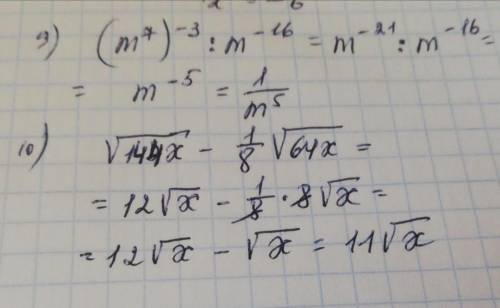 9) (m⁷)⁻³ : m⁻¹⁶ = m⁻²¹ : m⁻¹⁶ =
= m⁻⁵ = 1/m⁵
10) √144x - 1/8 √64x =
= 12√x - 1/8 · 8√x =
= 12√x - √x = 11√x